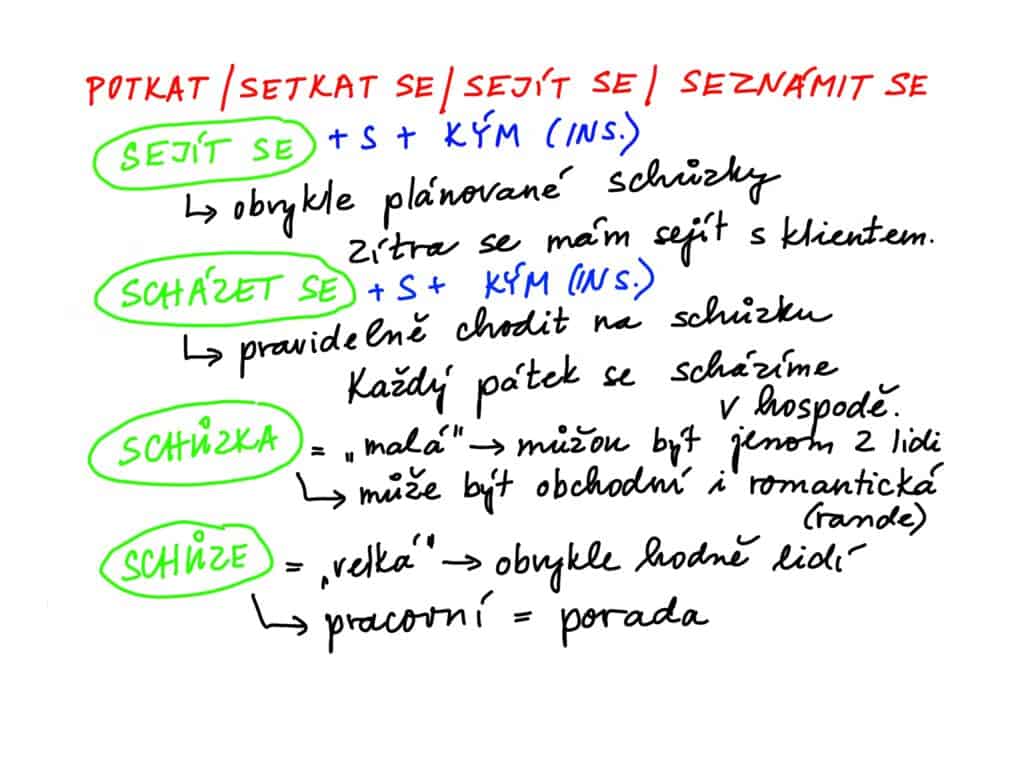 POTKAT / SETKAT SE / SEJÍT SE / SEZNÁMIT SE
SEJÍT SE + S + KÝM (INS.)
↳ obvykle plánované schůzky
Zítra se mám sejít s klientem.
SCHÁZET SE + S + KÝM (INS.)
↳ pravidelně chodit na schůzku
Každý pátek se scházíme
v hospodě.
SCHŮZKA = „malá" → můžou být jenom 2 lidi
↳ může být obchodní i romantická
(rande)
SCHŮZE = „velká" → obvykle hodně lidí
↳ pracovní = porada